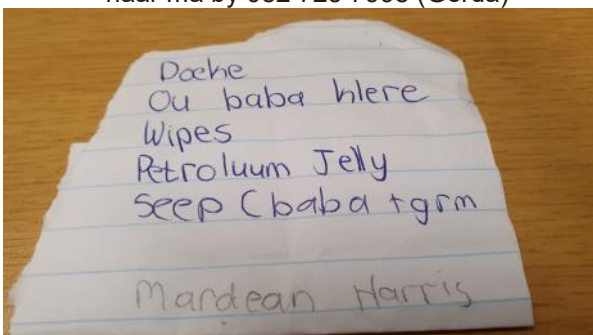 naar ma by (Gerda)
Doehe
Ou baba hlere
Wipes
Petroluum Jelly
Seep (baba + grm
Mardean Harris